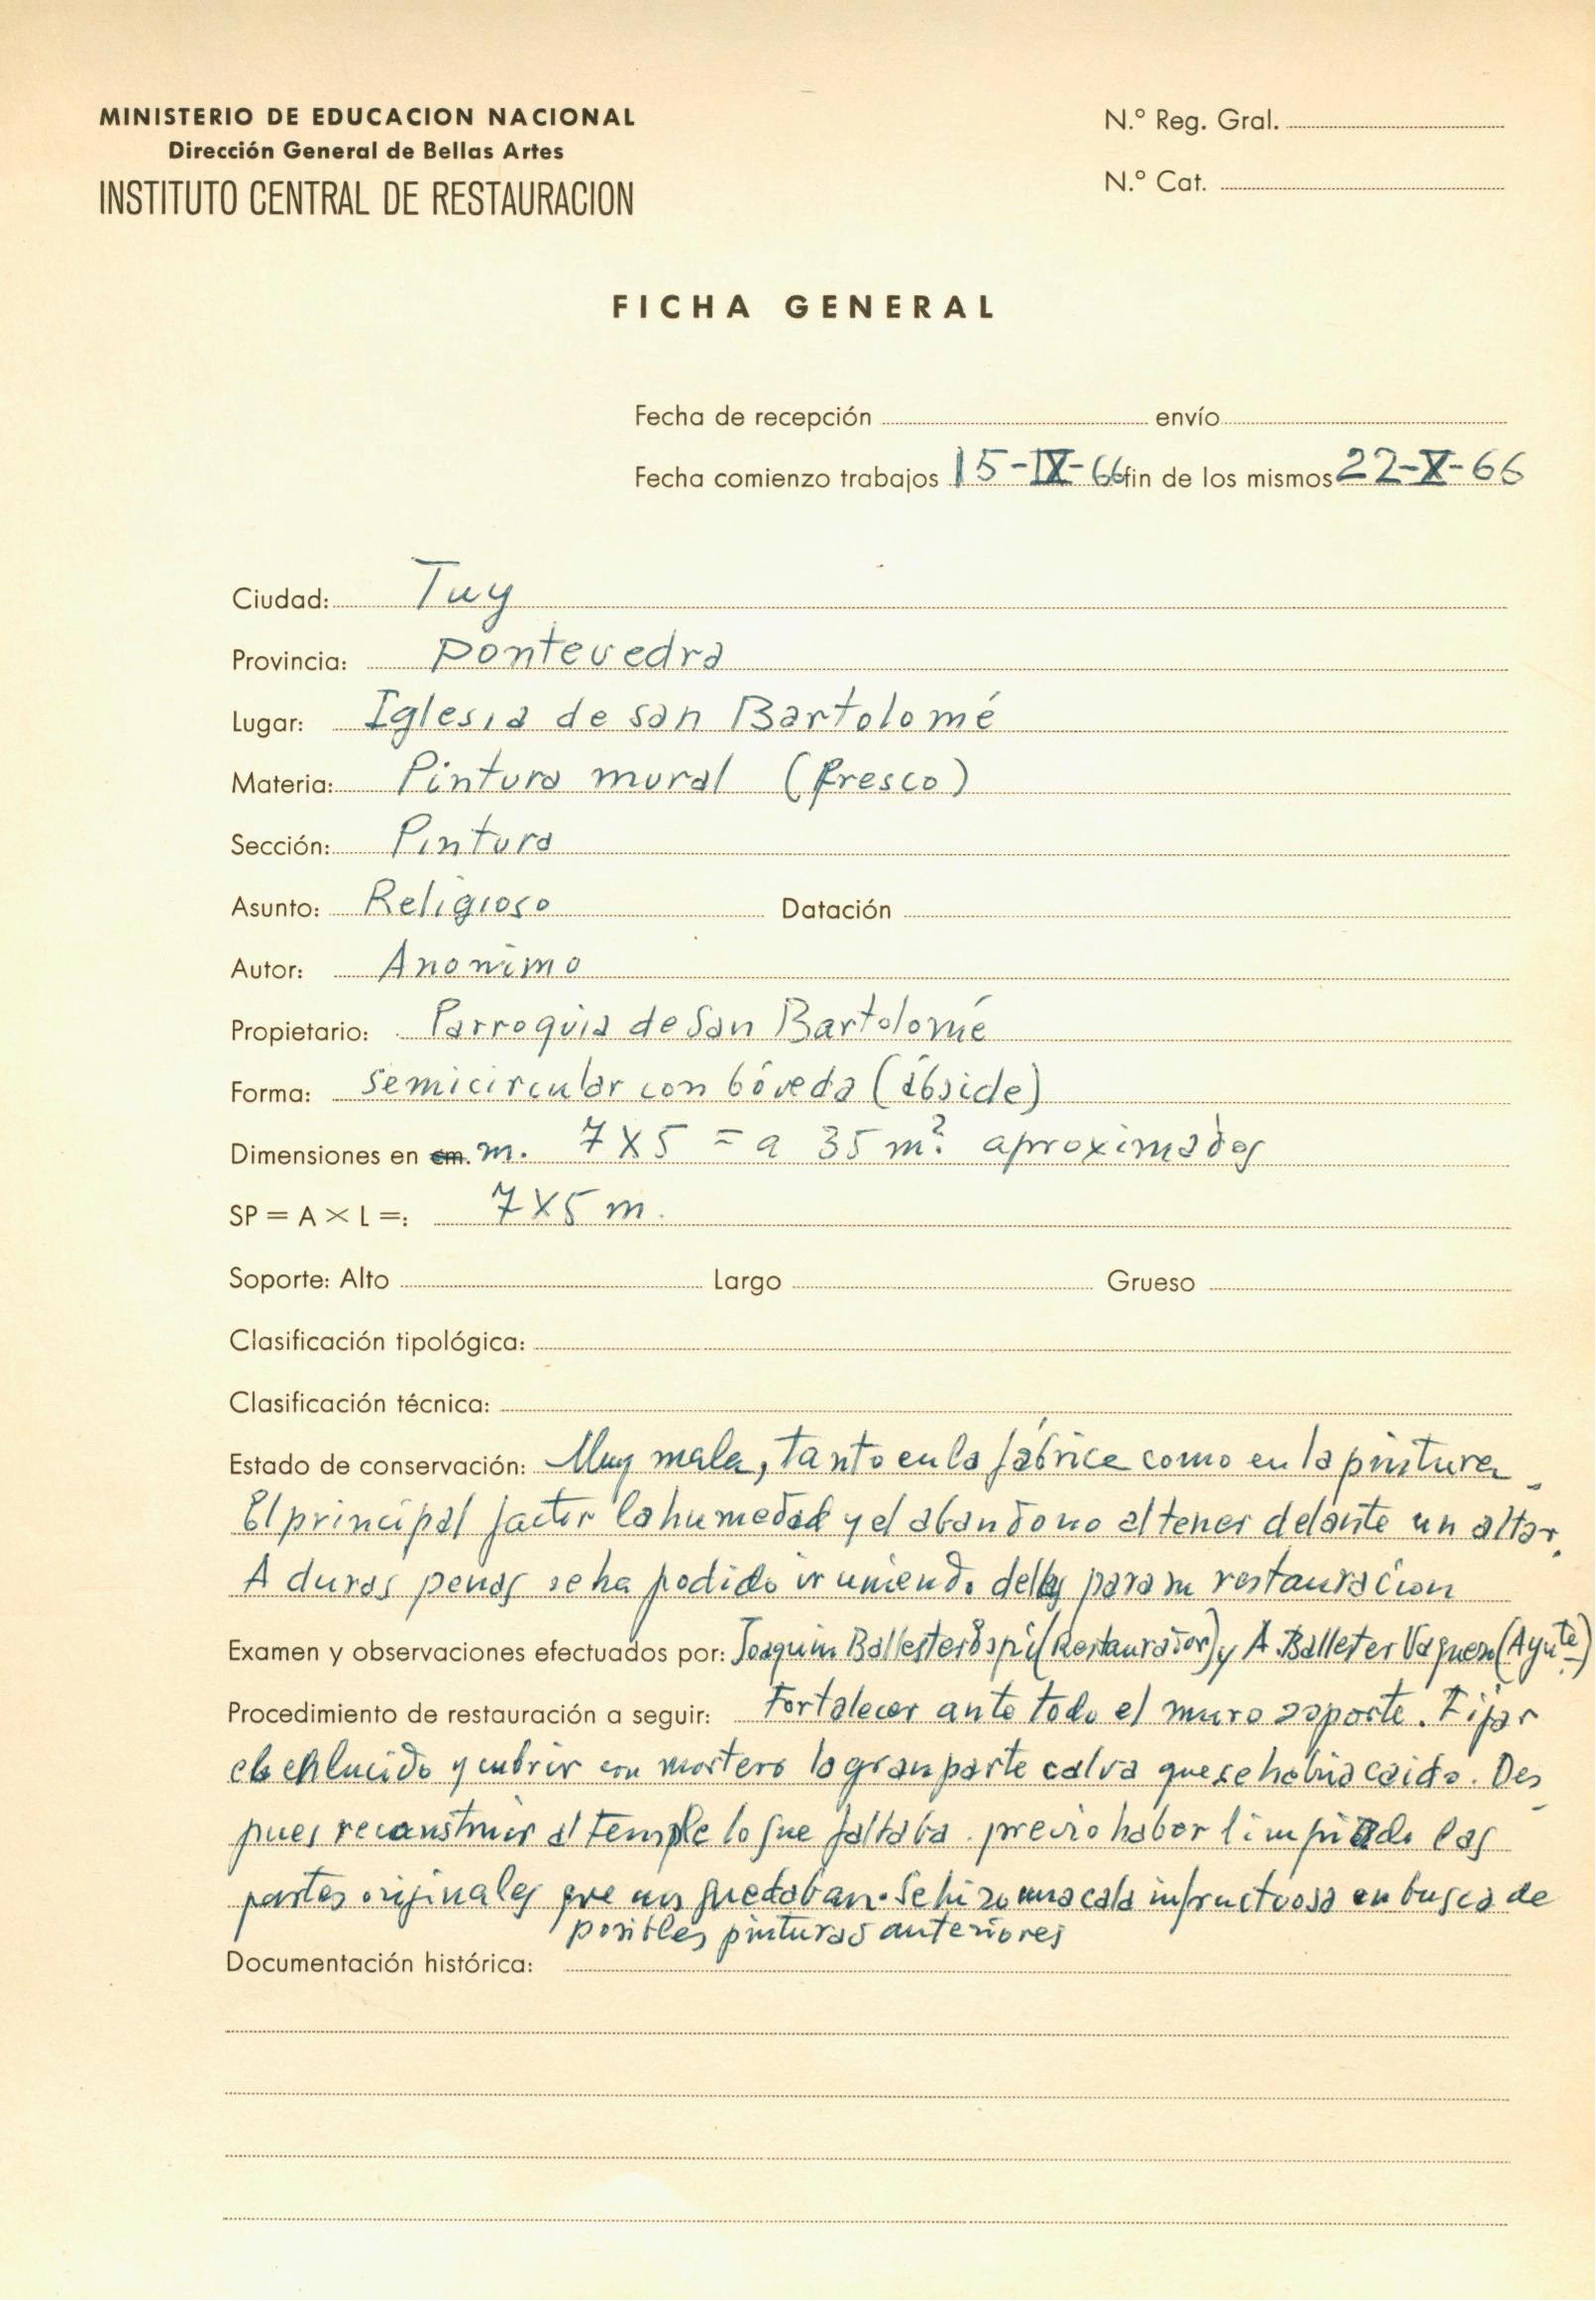 MINISTERIO DE EDUCACION NACIONAL
Dirección General de Bellas Artes
INSTITUTO CENTRAL DE RESTAURACION
N.º Reg. Gral.
N.º Cat.
FICHA GENERAL
Fecha de recepción envío
Fecha comienzo trabajos 15-IX-66 fin de los mismos 22-X-66
Ciudad: Tuy
Provincia: Pontevedra
Lugar: Iglesia de san Bartolomé
Materia: Pintura mural (fresco)
Sección: Pintura
Asunto: Religioso Datación
Autor: Anonimo
Propietario: Parroquia de San Bartolomé
Forma: semicircular con bóveda (ábside)
Dimensiones en cm. m. 7 X 5 = a 35 m² aproximados
SP = A × L =: 7 X 5 m.
Soporte: Alto Largo Grueso
Clasificación tipológica:
Clasificación técnica:
Estado de conservación: Muy mala, tanto en la fábrica como en la pintura.
El principal factor la humedad y el abandono al tener delante un altar.
A duras penas se ha podido ir uniendo para su restauracion
Examen y observaciones efectuados por: Joaquin Ballester Espí (Restaurador) y A. Ballester Vaquen (Ayute)
Procedimiento de restauración a seguir: Fortalecer ante todo el muro soporte. Fijar
el enlucido y cubrir con mortero la gran parte calva que se habia caido. Des
pues reconstruir al temple lo que faltaba previo haber limpiado las
partes originales que quedaban. Se hizo una cala infructuosa en busca de
posibles pinturas anteriores
Documentación histórica: